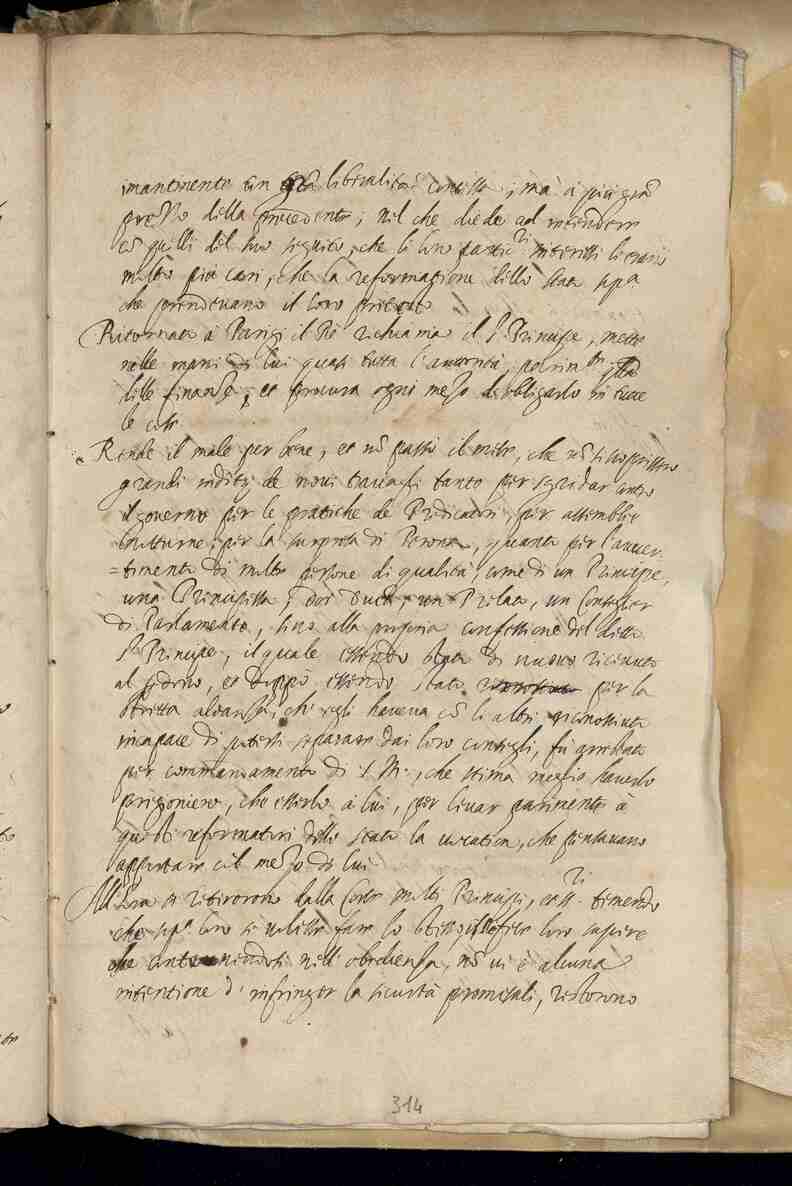 imantinente con gra liberalità concessa, ma à più gran
prezzo della precedente; nel che diede ad intendere
cō quelli del suo seguito, che li loro partic.ri interessi li erano
molto più cari, che la reformazione dello stato
che prendevano il loro pretesto
Ritornato à Parigi il Rè richiama il S.r Principe, mette
nelle mani di lui quasi tutta l'autorità,
delle finanze, et procura ogni mezo di obligarlo in tutte
le cose
Rende il male per bene, et nō passò il mese, che nō si scoprissero
grandi inditij de novi travagli tanto per sgridar contro
il governo per le pratiche de Predicatori, per assemblee
notturne, per la surpresa di Perona, quanto per l'avver-
=timento di molte persone di qualità, come di un Principe,
una Principessa, doi Duchi, un Prelato, un Consiglier
di Parlamento, sino alla propria confessione del detto
S.r Principe, il quale essendo stato di nuovo ricevuto
al perdono, et doppo essendo stato per la
stretta aleanza, che egli haveva cō li altri riconosciuto
incapace di potersi separare dai loro consegli, fù arrestato
per commandamento di S. M., che stima meglio haverlo
prigioniero, che esserlo à lui, per levar parimente à
questi reformatori dello stato la vocation, che pensavano
apportare col mezo di lui
All'hora si ritirorono dalla Corte molti Principi, et ss.ri timendo
che loro si volesse fare lo stesso loro sapere
che contenendosi nell'obedienza, nō vi è alcuna
intentione d'infringer la sicurtà promessali, restorono
314